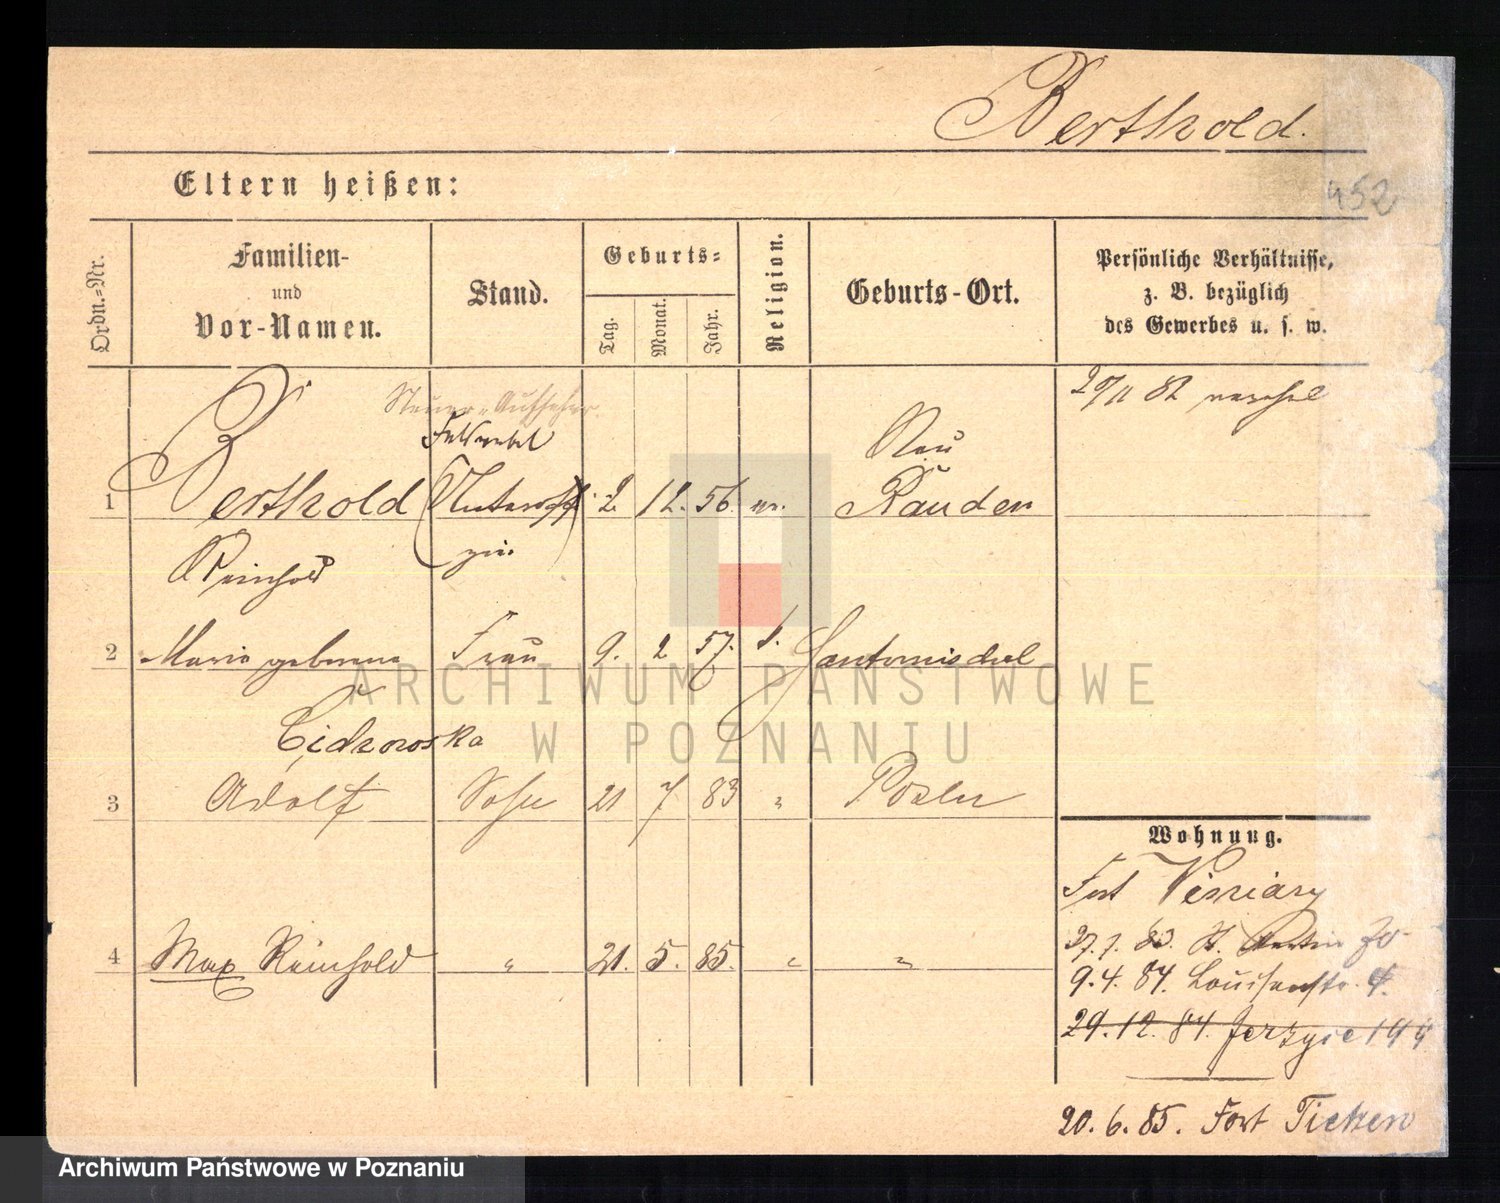 Berthold.
452
Eltern heißen:
Ordn.-Nr.
Familien-
und
Vor-Namen.
Stand.
Geburts-
Tag.
Monat.
Jahr.
Religion.
Geburts-Ort.
Persönliche Verhältnisse,
z. B. bezüglich
des Gewerbes u. s. w.
Steuer-Aufseher
Feldwebel
1 Berthold Unteroff. 2. 12. 56. Rauden
Neu
Reinhold
2 Marie geborene Frau 9. 2 57.
3 Adolf Sohn 21 7 83 " Posen
4 Max Reinhold " 21. 5. 85. " "
Wohnung.
Fort
27.7.83. St. Martin
9.4.84. Louisenstr. 4.
29.12.84. Jerzyce
20.6.85. Fort Tietzen
ARCHIWUM PAŃSTWOWE
W POZNANIU
Archiwum Państwowe w Poznaniu